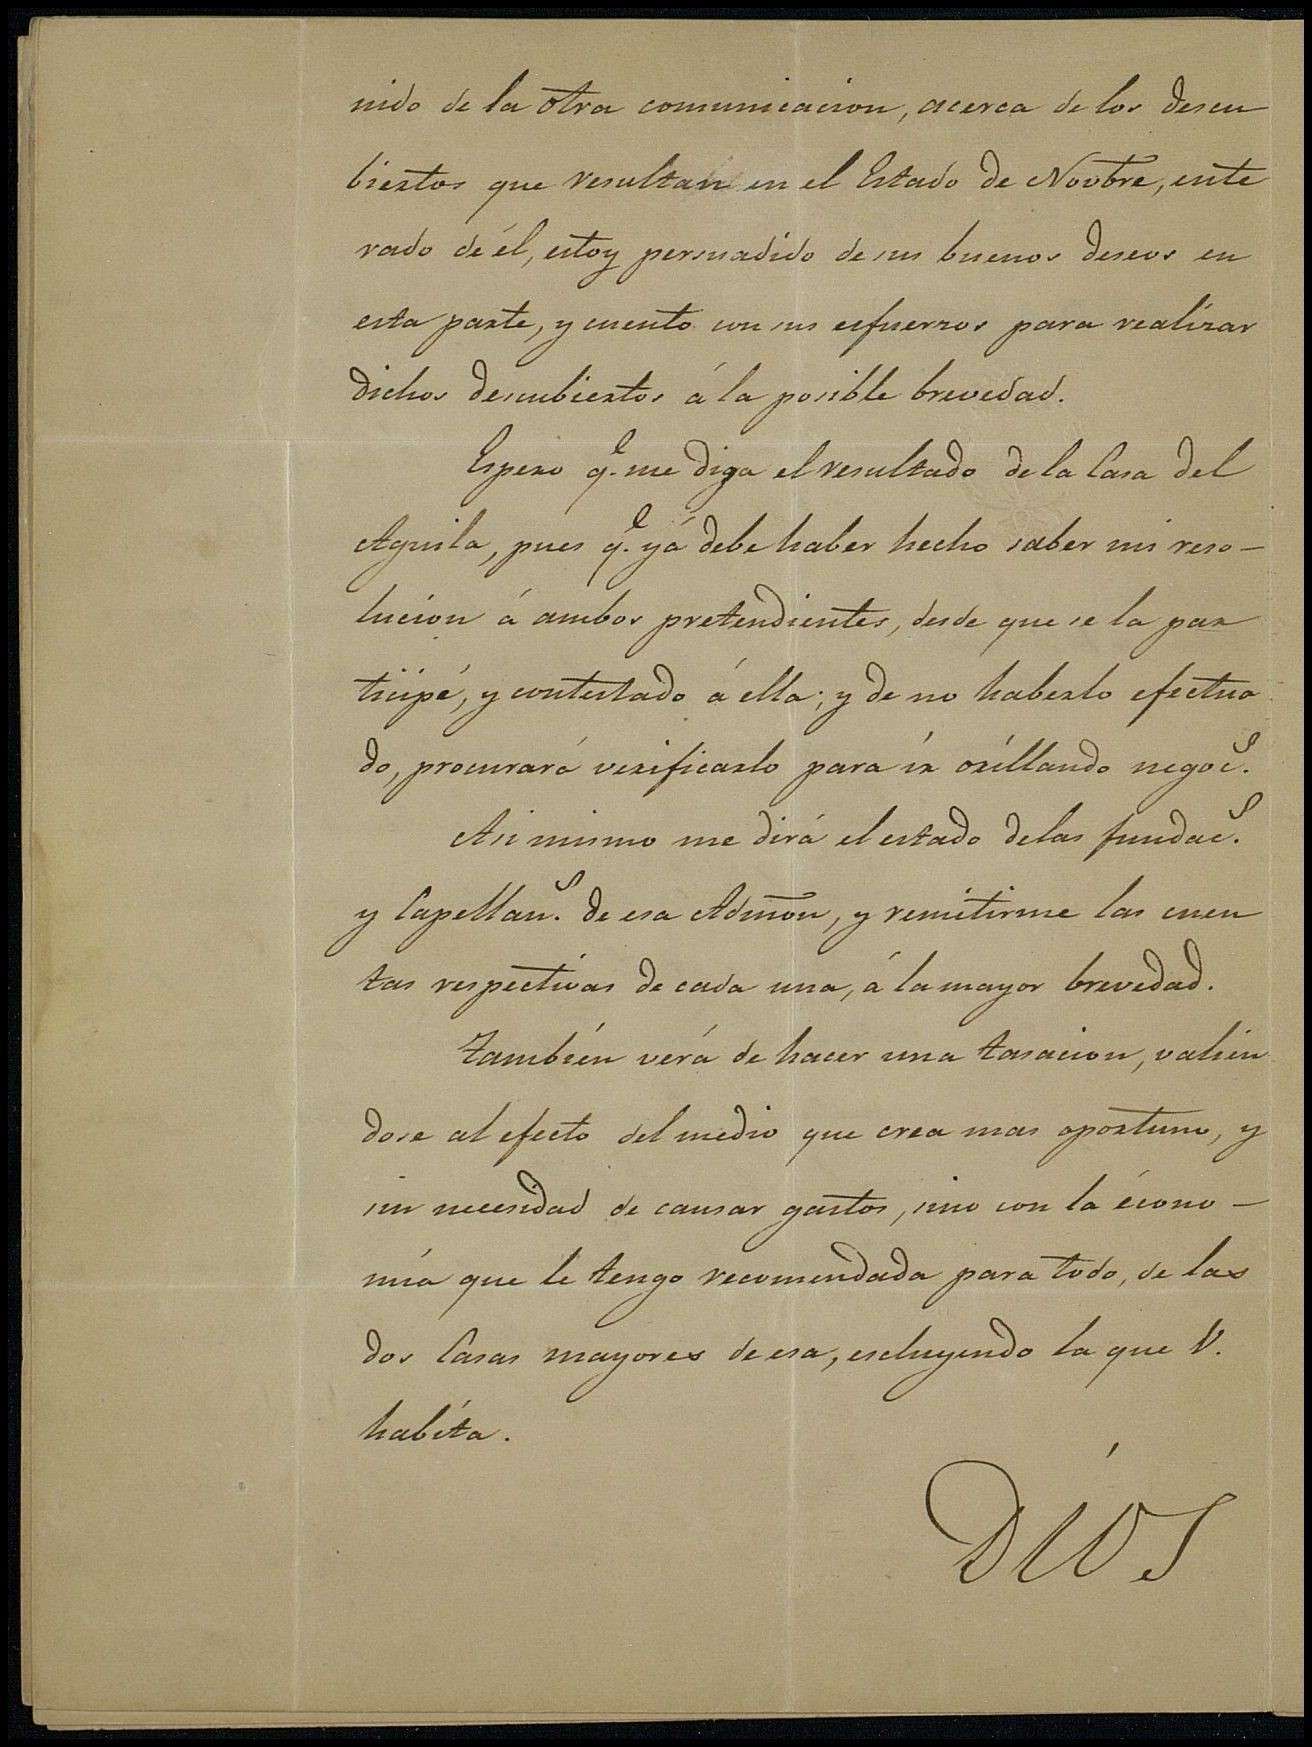 nido de la otra comunicacion, acerca de los descu
biertos que resultan en el Estado de Novbre, ente
rado de él, estoy persuadido de sus buenos deseos en
esta parte, y cuento con sus esfuerzos para realizar
dichos descubiertos á la posible brevedad.
Espero q.e me diga el resultado de la Casa del
Aguila, pues q.e yá debe haber hecho saber mi reso-
lucion á ambos pretendientes, desde que se la par
ticipé, y contestado á ella; y de no haberlo efectua
do, procurará verificarlo para ír orillando negoc.s
Asi mismo me dirá el estado delas fundac.s
y Capellan.s de esa Admon, y remitirme las cuen
tas respectivas de cada una, á la mayor brevedad.
También verá de hacer una tasacion, valien
dose al efecto del medio que crea mas oportuno, y
sin necesidad de causar gastos, sino con la écono-
mía que le tengo recomendada para todo, de las
dos Casas mayores de esa, escluyendo la que V.
habíta.
DIOS